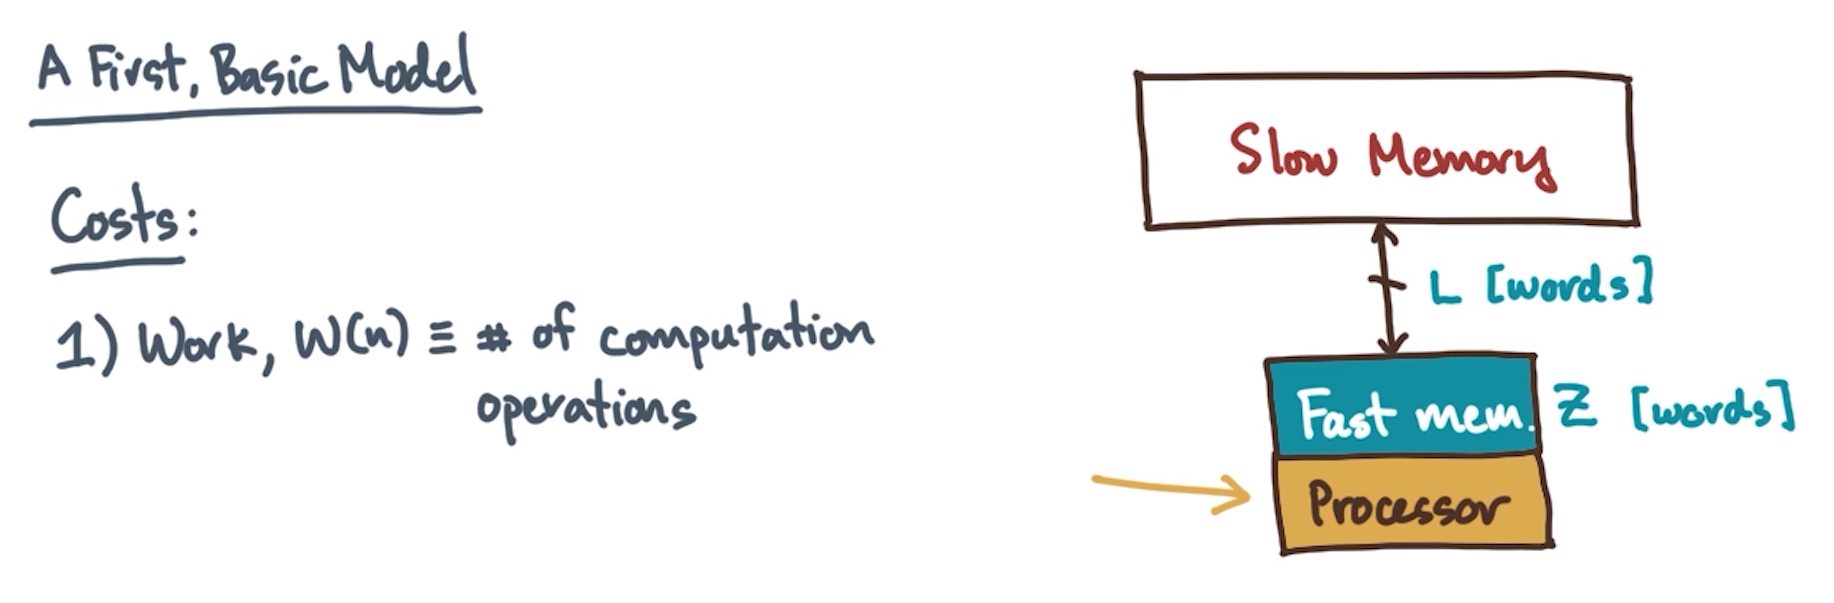 A First, Basic Model
Costs:
1) Work, W(n) ≡ # of computation
operations
Slow Memory
L [words]
Fast mem.
Z [words]
Processor